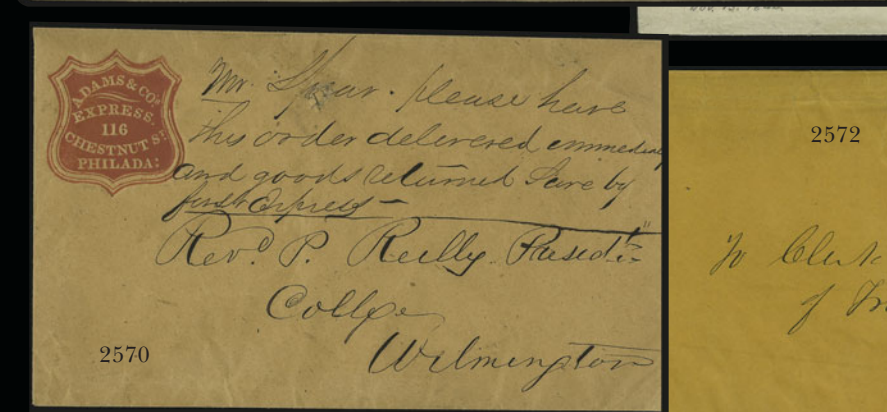 ADAMS & CO'S
EXPRESS,
116
CHESTNUT ST
PHILADA:
Mr. Spear. please have
this order delivered immediately
and goods returned here by
first Express —
Revd. P. Reilly. Presidt.
College
Wilmington
2570
2572
To Clerk
of